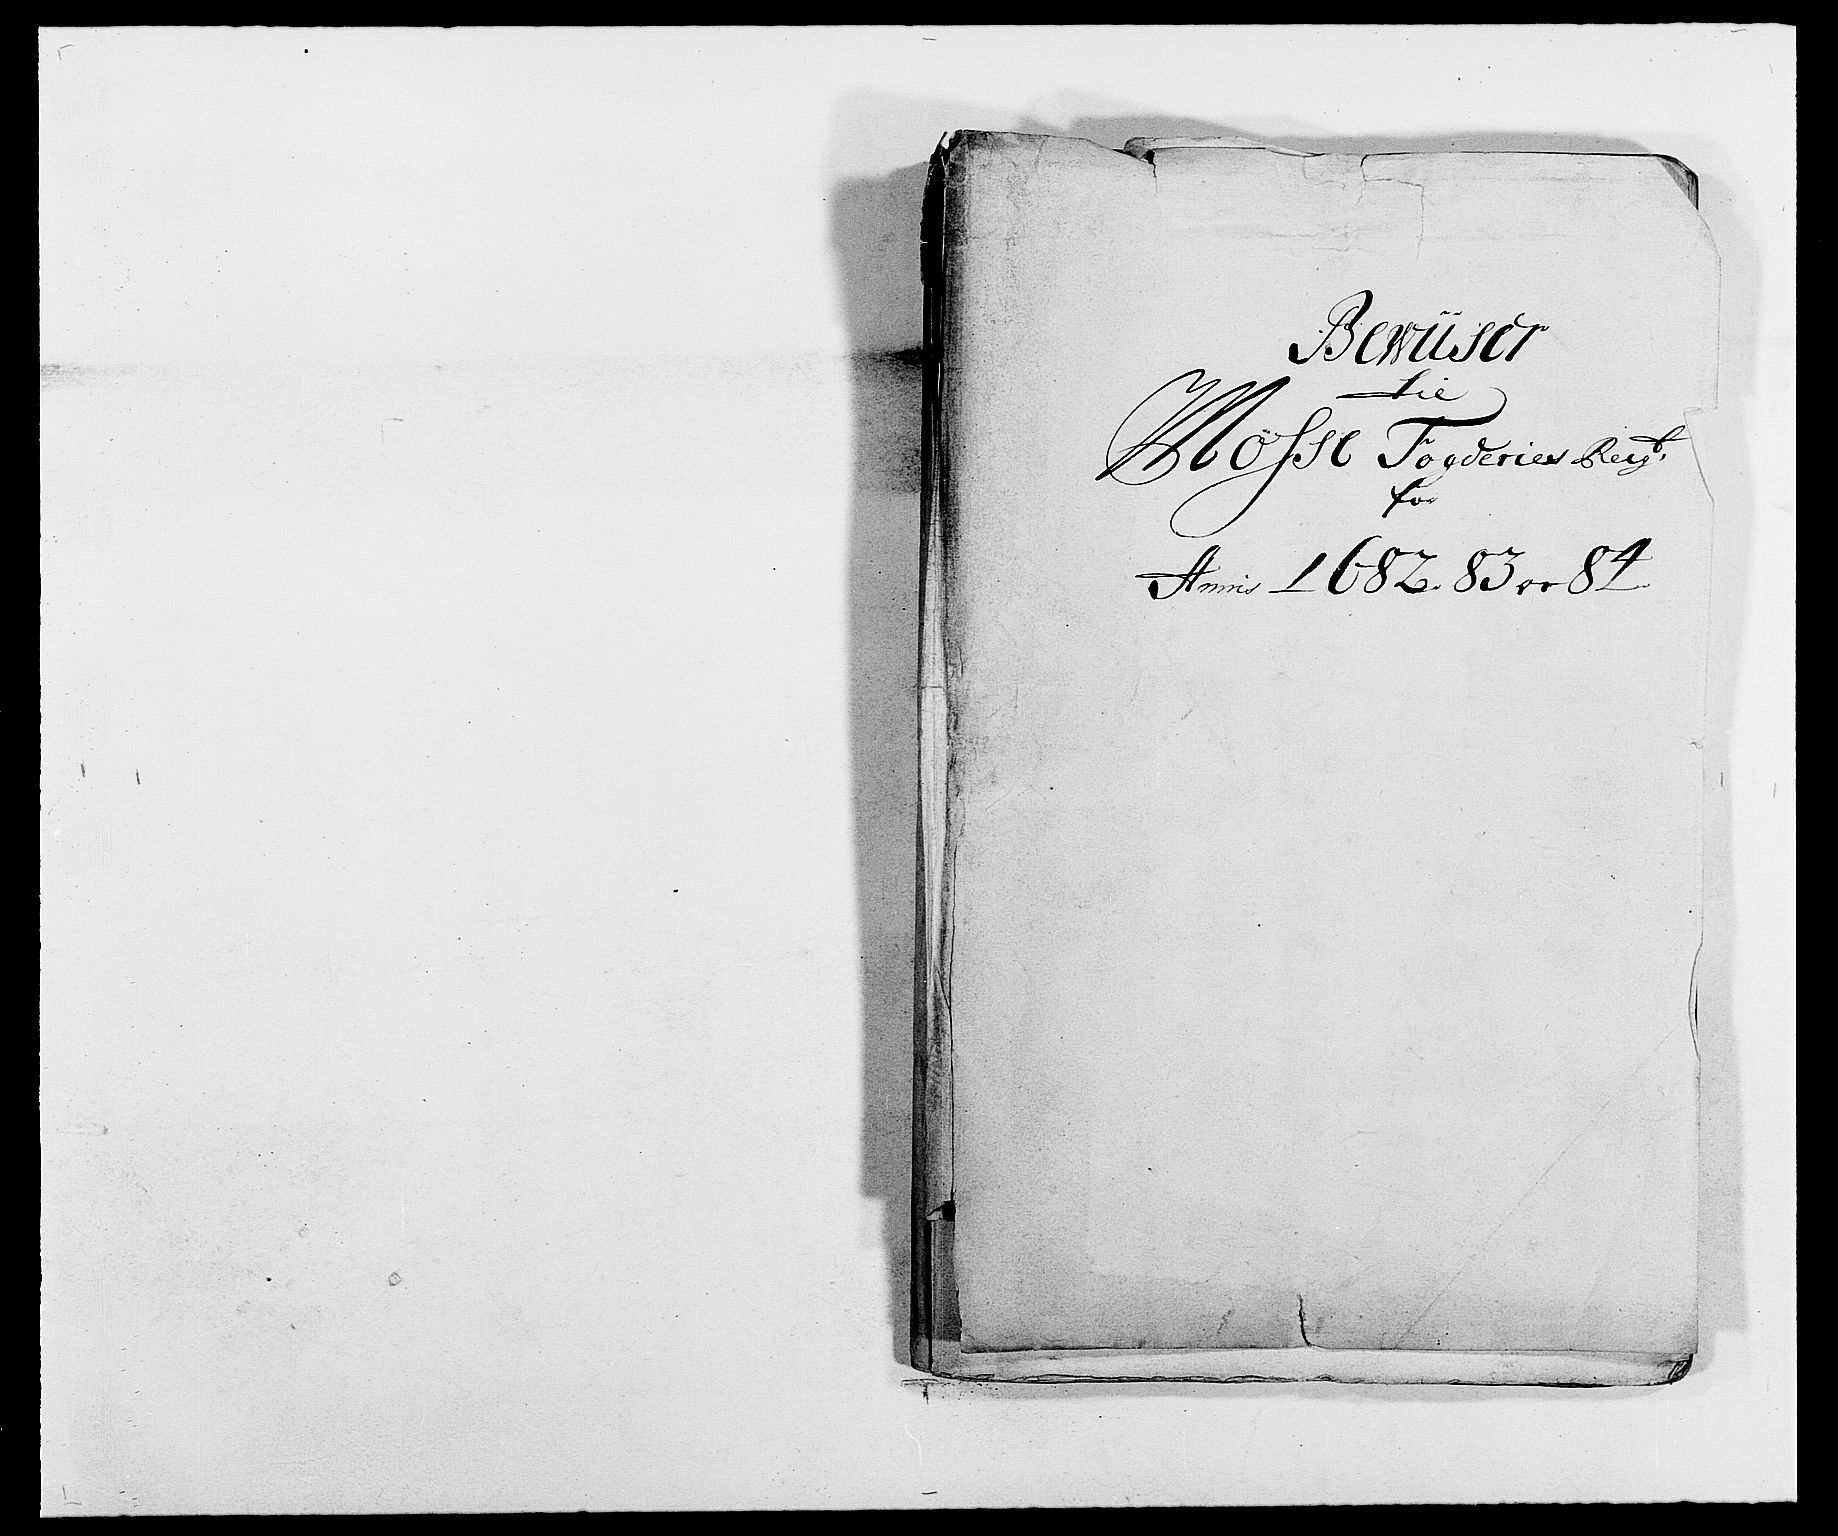 Bewüser
til
Mosse Fogderies Regb.
for
Annis 1682. 83 oc 84.